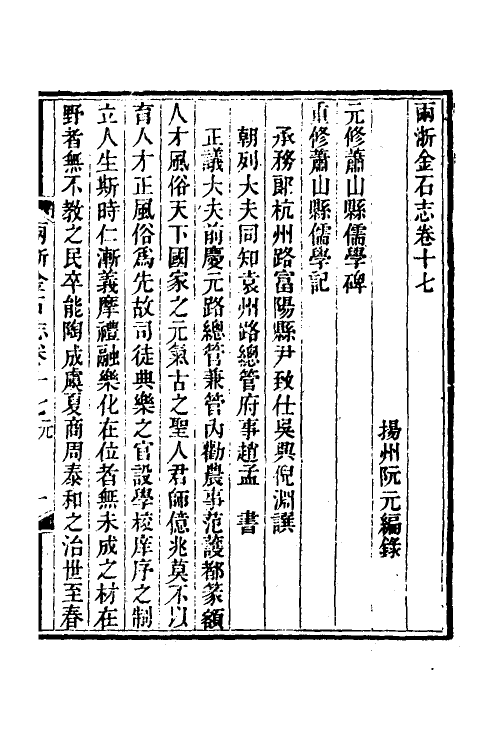 兩浙金石志卷十七
揚州阮元編錄
元修蕭山縣儒學碑
重修蕭山縣儒學記
承務郎杭州路富陽縣尹致仕吳興倪淵譔
朝列大夫同知袁州路總管府事趙孟 書
正議大夫前慶元路總管兼管內勸農事范䕶都篆額
人才風俗天下國家之元氣古之聖人君師億兆莫不以
育人才正風俗爲先故司徒典樂之官設學校庠序之制
立人生斯時仁漸義摩禮融樂化在位者無未成之材在
野者無不教之民卒能陶成虞夏商周泰和之治世至春
兩浙金石志卷十七元 一